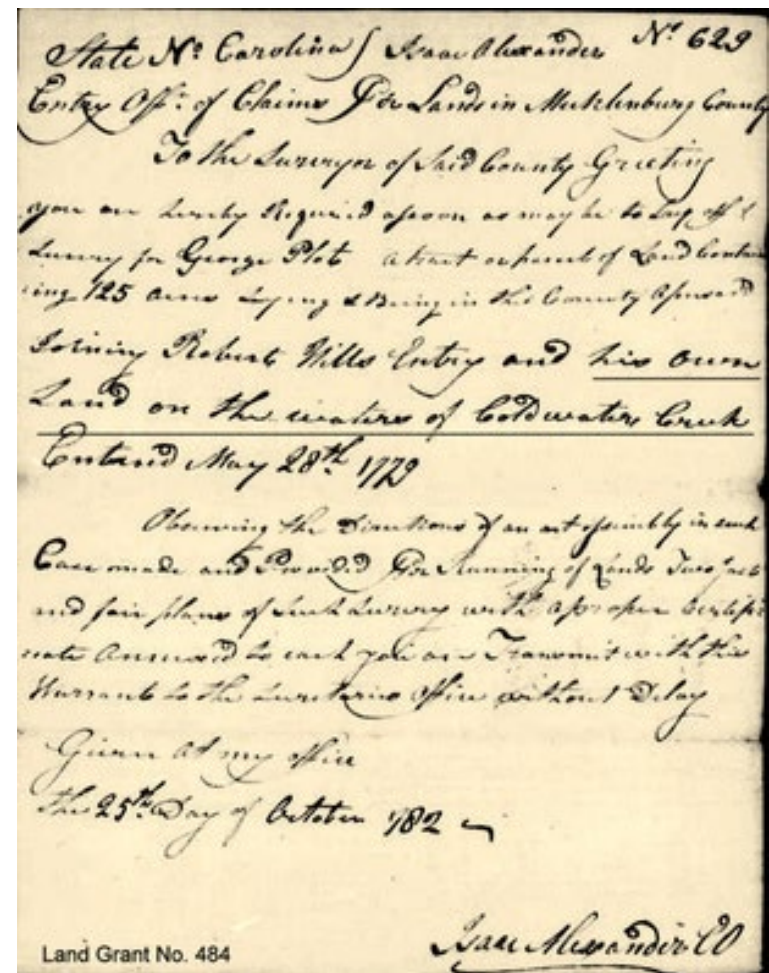 State No. Carolina } Isaac Alexander No. 629
Entry Offr. of Claims For Lands in Mecklenburg County
To the Surveyor of Said County Greeting
you are hereby Required as soon as may be to Lay off &
Survey for George Plot a tract or parcel of Land Contain
ing 125 acres Lying & Being in the County aforesaid
Joining Robert Wills Entry and his own
Land on the waters of Coldwater Creek
Entered May 28th. 1779
Observing the Directions of an act of assembly in such
Case made and Provided For Running of Lands Two Just
and fair plans of Such Survey with a proper Certifi
cate Annexed to each you are Transmit with this
Warrant to the Secretaries office without Delay
Given at my office
the 25th. Day of October 1782
Isaac Alexander EO
Land Grant No. 484